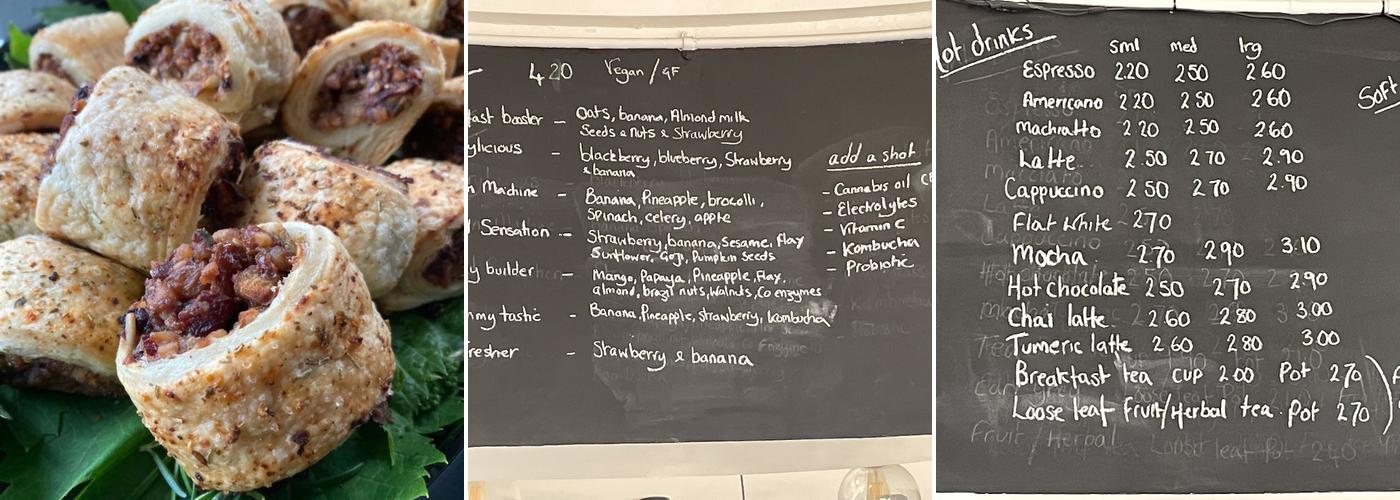 420 Vegan/GF
fast booster – Oats, banana, Almond milk
Seeds & nuts & Strawberry
ylicious – blackberry, blueberry, Strawberry
& banana
n Machine – Banana, Pineapple, brocolli,
Spinach, celery, apple
Sensation – Strawberry, banana, Sesame, flay
Sunflower, Goji, Pumpkin Seeds
y builder – Mango, Papaya, Pineapple, Flax,
almond, brazil nuts, Walnuts, Co enzymes
my tastic – Banana, Pineapple, Strawberry, Kombucha
resher – Strawberry & banana
add a shot
– Cannabis oil
– Electrolytes
– Vitamin C
– Kombucha
– Probiotic
Hot drinks
Sml med lrg
Espresso 2.20 2.50 2.60
Americano 2.20 2.50 2.60
Machiatto 2.20 2.50 2.60
Latte 2.50 2.70 2.90
Cappuccino 2.50 2.70 2.90
Flat White 2.70
Mocha 2.70 2.90 3.10
Hot Chocolate 2.50 2.70 2.90
Chai latte 2.60 2.80 3.00
Tumeric latte 2.60 2.80 3.00
Breakfast tea cup 2.00 Pot 2.70
Loose leaf Fruit/Herbal tea. Pot 2.70
Soft